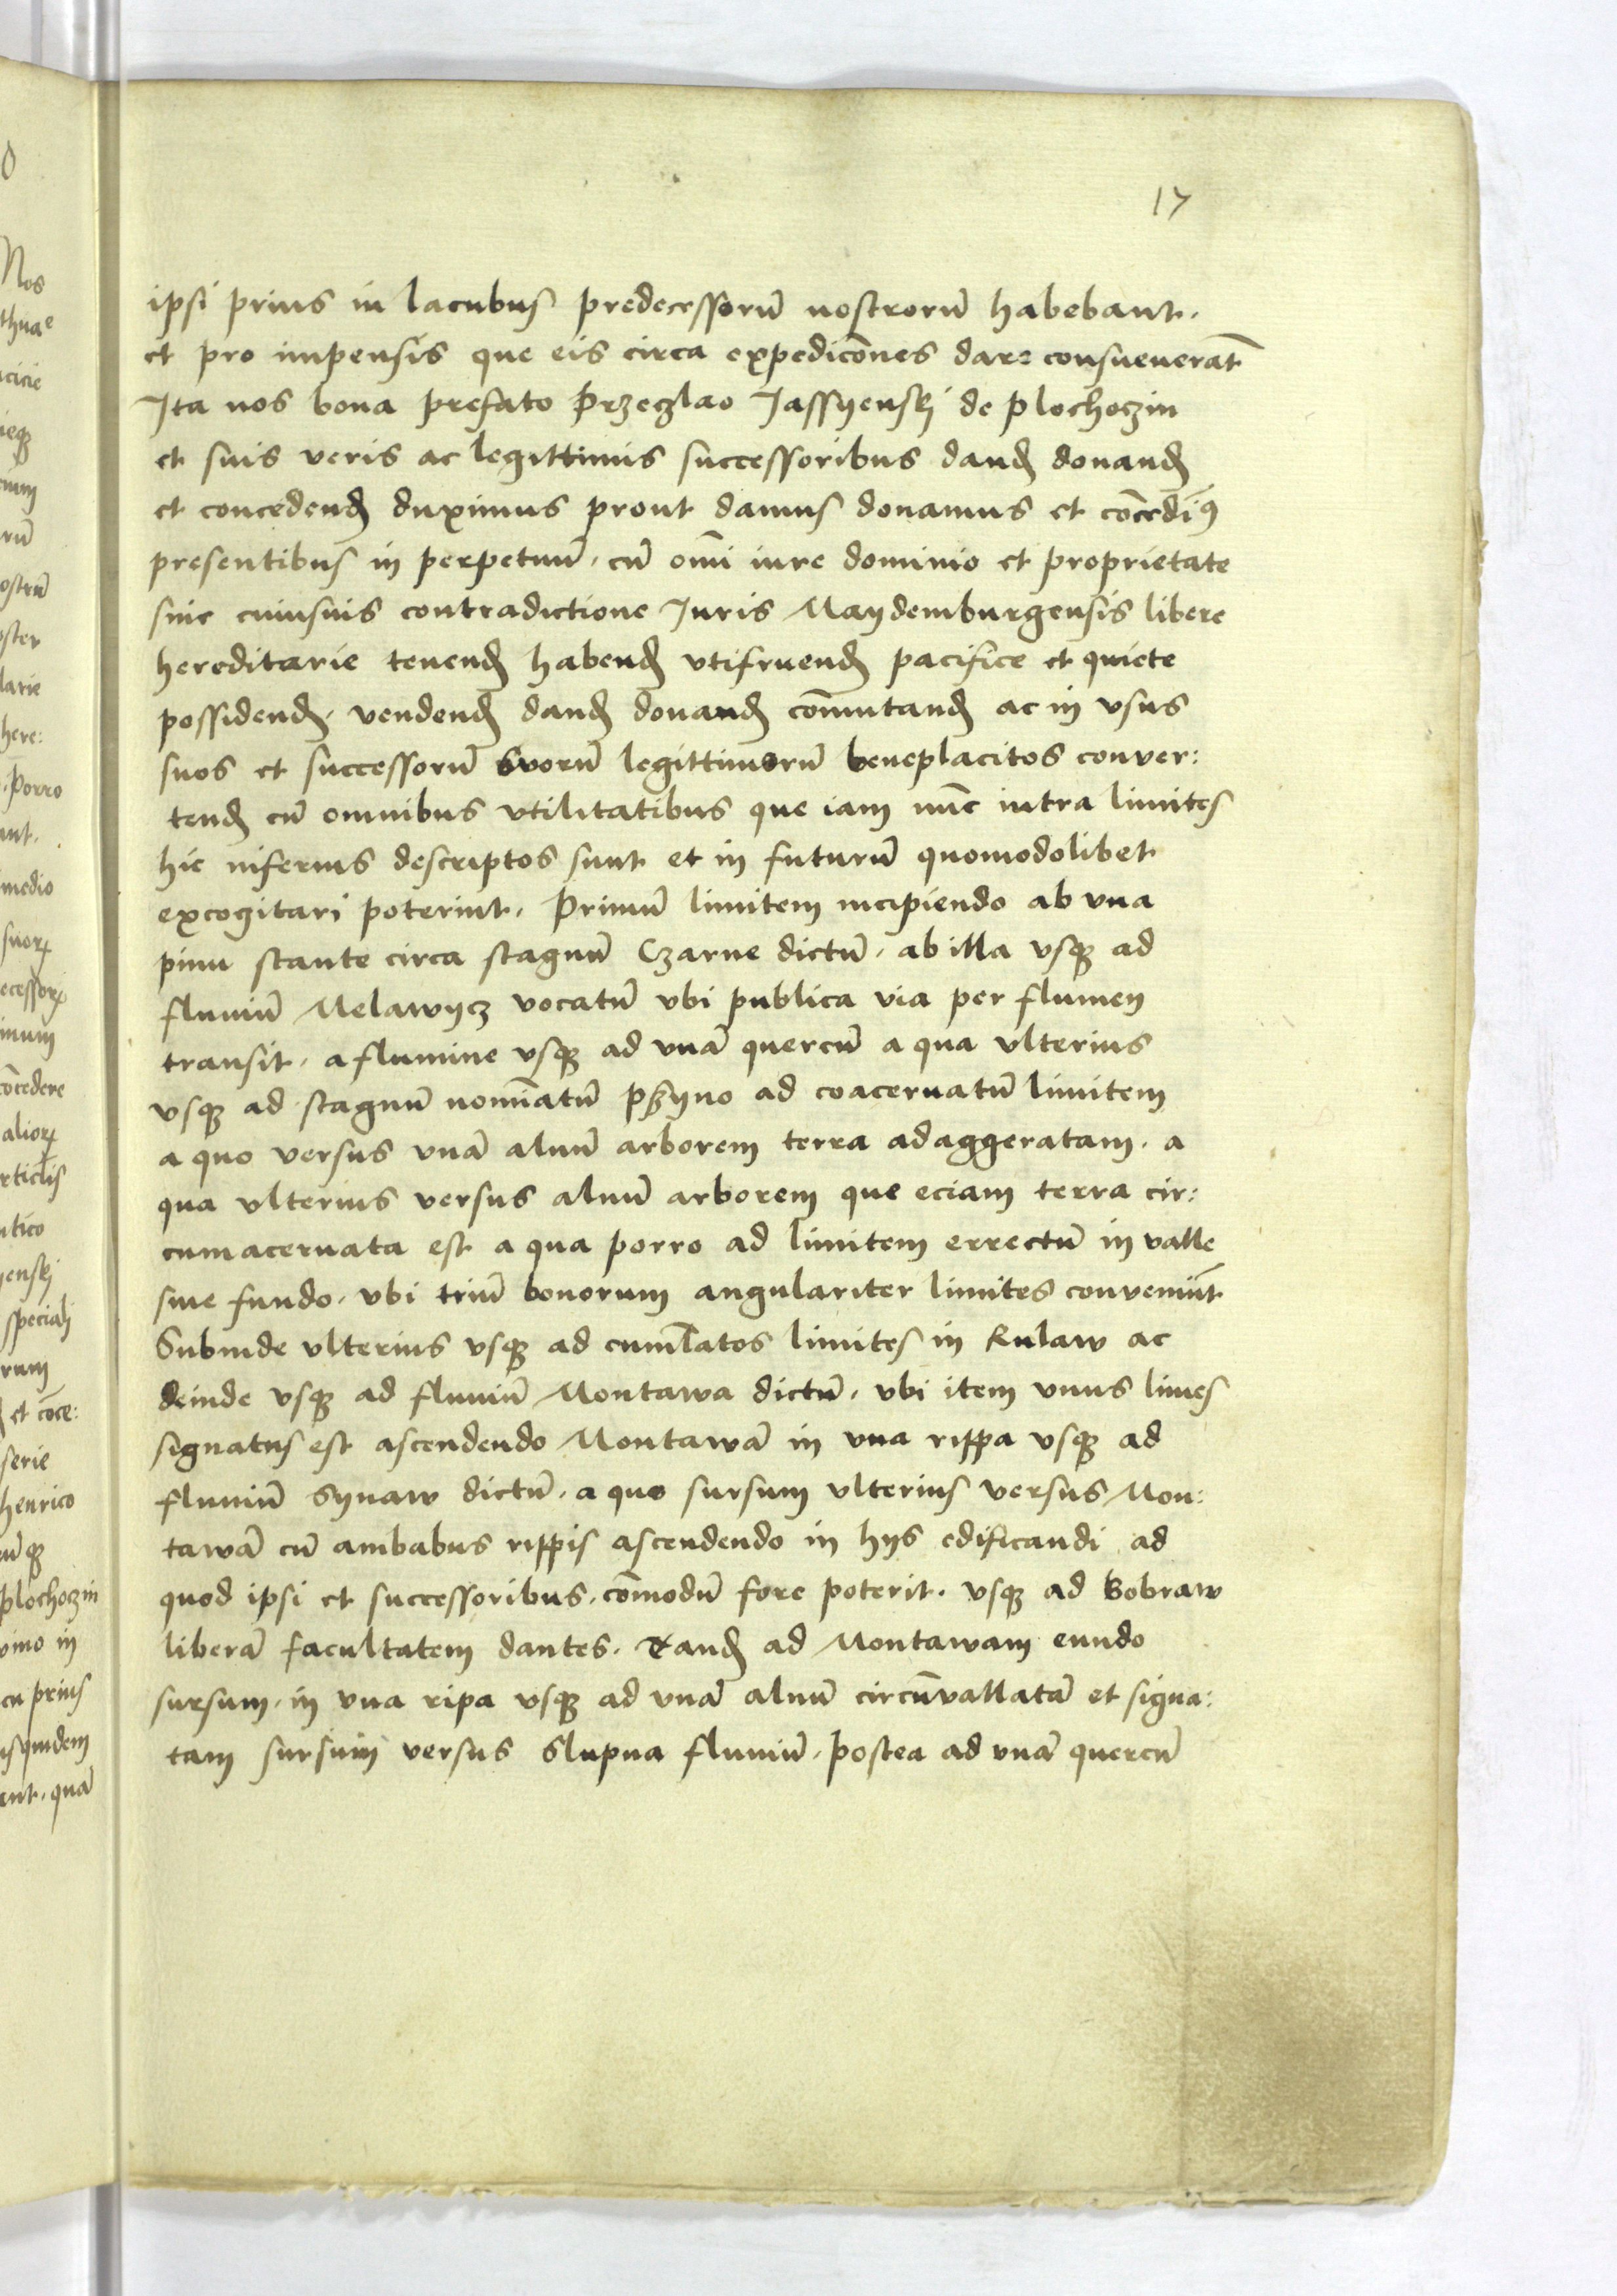 17
ipsi prius in lacubus predecessorū nostrorū habebant.
et pro impensis que eis circa expediċōnes darꝫ consueuerāt
Ita nos bona prefato Przeczlao Jassyenskj de Plochoczin
et suis veris ac legittimis successoribus dand̄ donand̄
et concedend̄ duximus prout damus donamus et cōcedīꝯ
presentibus in perpetuū, cū om̄i iure dominio et proprietate
sine cuiusuis contradictione Juris Maydemburgensis libere
hereditarie tenend̄ habend̄ vtifruend̄ pacifice et quiete
possidend̄, vendend̄ dand̄ donand̄ cōmutand̄ ac in vsus
suos et successorū svorū legittimorū beneplacitos conver:
tend̄ cū omnibus vtilitatibus que iam nūc intra limites
hic inferius descriptos sunt et in futurū quomodolibet
excogitari poterint. Primū limitem incipiendo ab vna
pinu stante circa stagnū Czarne dictū, ab illa vsqꝫ ad
fluuiū Melawycz vocatū vbi publica via per flumen
transit, a flumine vsqꝫ ad vnā quercū a qua vlterius
vsqꝫ ad stagnū nomīatū ad coaceruatū limitem
a quo versus vnā alnū arborem terra adaggeratam. a
qua vlterius versus alnū arborem que eciam terra cir:
cumaceruata est a qua porro ad limitem errectū in valle
sine fundo, vbi triū bonorum angulariter limites conveniūt
Subinde vlterius vsqꝫ ad cumlatos limites in Kulaw ac
deinde vsqꝫ ad fluuiū Montawa dictū, vbi item vnus limes
signatus est ascendendo Montawā in vna rippa vsqꝫ ad
fluuiū Synaw dictū, a quo sursum vlterius versus Mon:
tawā cū ambabus rippis ascendendo in hys edificandi ad
quod ipsi et successoribus, cōmodū fore poterit. vsqꝫ ad Bobraw
liberā facultatem dantes. Tand̄ ad Montawam eundo
sursum, in vna ripa vsqꝫ ad vnā alnū circūvallatā et signa:
tam sursum versus Slupna fluuiū, postea ad vnā quercū